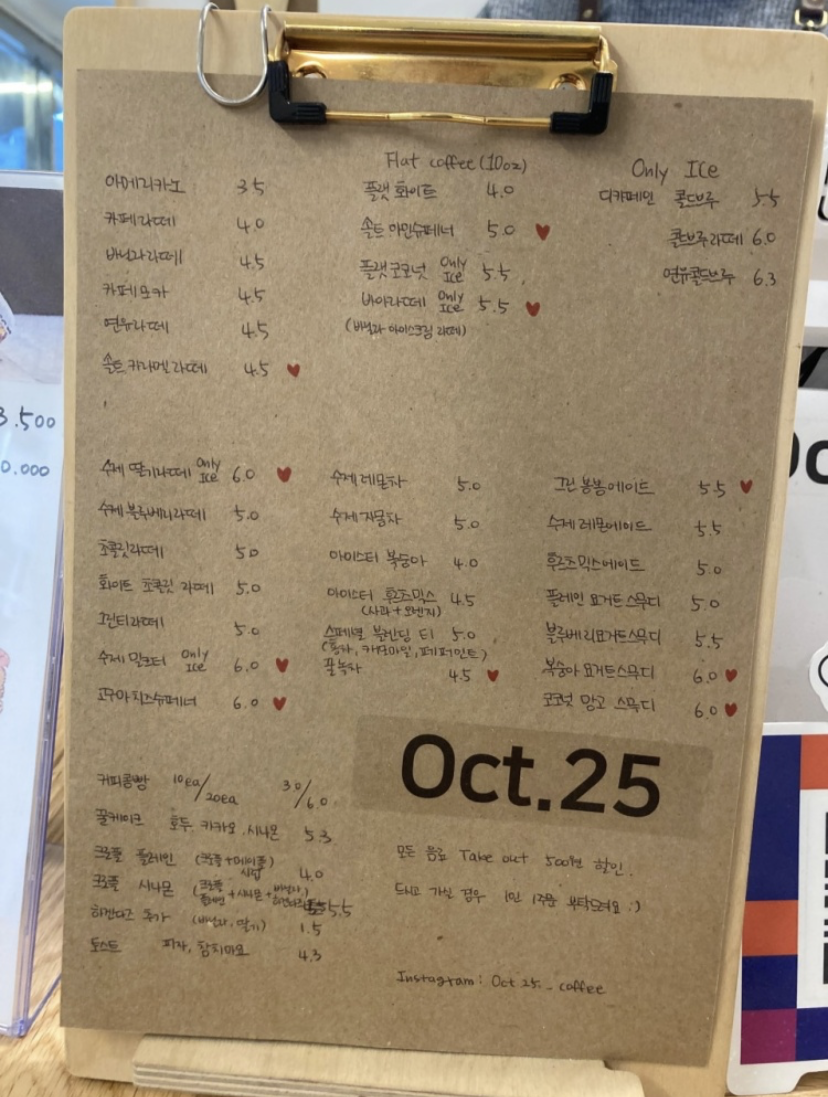 아메리카노 3.5
카페라떼 4.0
바닐라라떼 4.5
카페모카 4.5
연유라떼 4.5
솔트 카라멜라떼 4.5 ♥
Flat coffee (10oz)
플랫 화이트 4.0
솔트 아인슈페너 5.0 ♥
플랫코코넛 Only Ice 5.5
바아라떼 Only Ice 5.5 ♥
(바닐라 아이스크림 라떼)
Only Ice
디카페인 콜드브루 5.5
콜드브루라떼 6.0
연유콜드브루 6.3
수제 딸기라떼 Only Ice 6.0 ♥
수제 블루베리라떼 5.0
초콜릿라떼 5.0
화이트 초콜릿 라떼 5.0
그린티라떼 5.0
수제 밀크티 Only Ice 6.0 ♥
고구마치즈슈페너 6.0 ♥
수제레몬차 5.0
수제자몽차 5.0
아이스티 복숭아 4.0
아이스티 후르츠믹스 4.5
(사과+오렌지)
스페셜 블렌딩 티 5.0
(홍차, 카모마일, 페퍼민트)
꽃녹차 4.5 ♥
그린봉봉에이드 5.5 ♥
수제레몬에이드 5.5
후르츠믹스에이드 5.0
플레인 요거트스무디 5.0
블루베리요거트스무디 5.5
복숭아 요거트스무디 6.0 ♥
코코넛 망고 스무디 6.0 ♥
커피콩빵 10ea/20ea 3.0/6.0
꿀케이크 호두. 카카오. 시나몬 5.3
크로플 플레인 (크로플+메이플시럽) 4.0
크로플 시나몬 (크로플 플레인+시나몬+바닐라 하겐다즈) 5.5
하겐다즈 추가 (바닐라, 딸기) 1.5
토스트 피자, 참치마요 4.3
Oct.25
모든 음료 Take out 500원 할인.
드시고 가실 경우 1인 1주문 부탁드려요 :)
Instagram: Oct 25._coffee
3.500
0.000